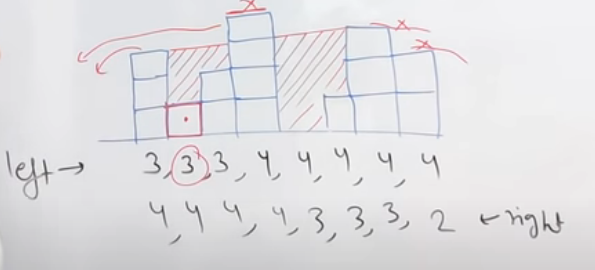 left → 3, 3, 3, 4, 4, 4, 4, 4
4, 4, 4, 4, 3, 3, 3, 2 ← right